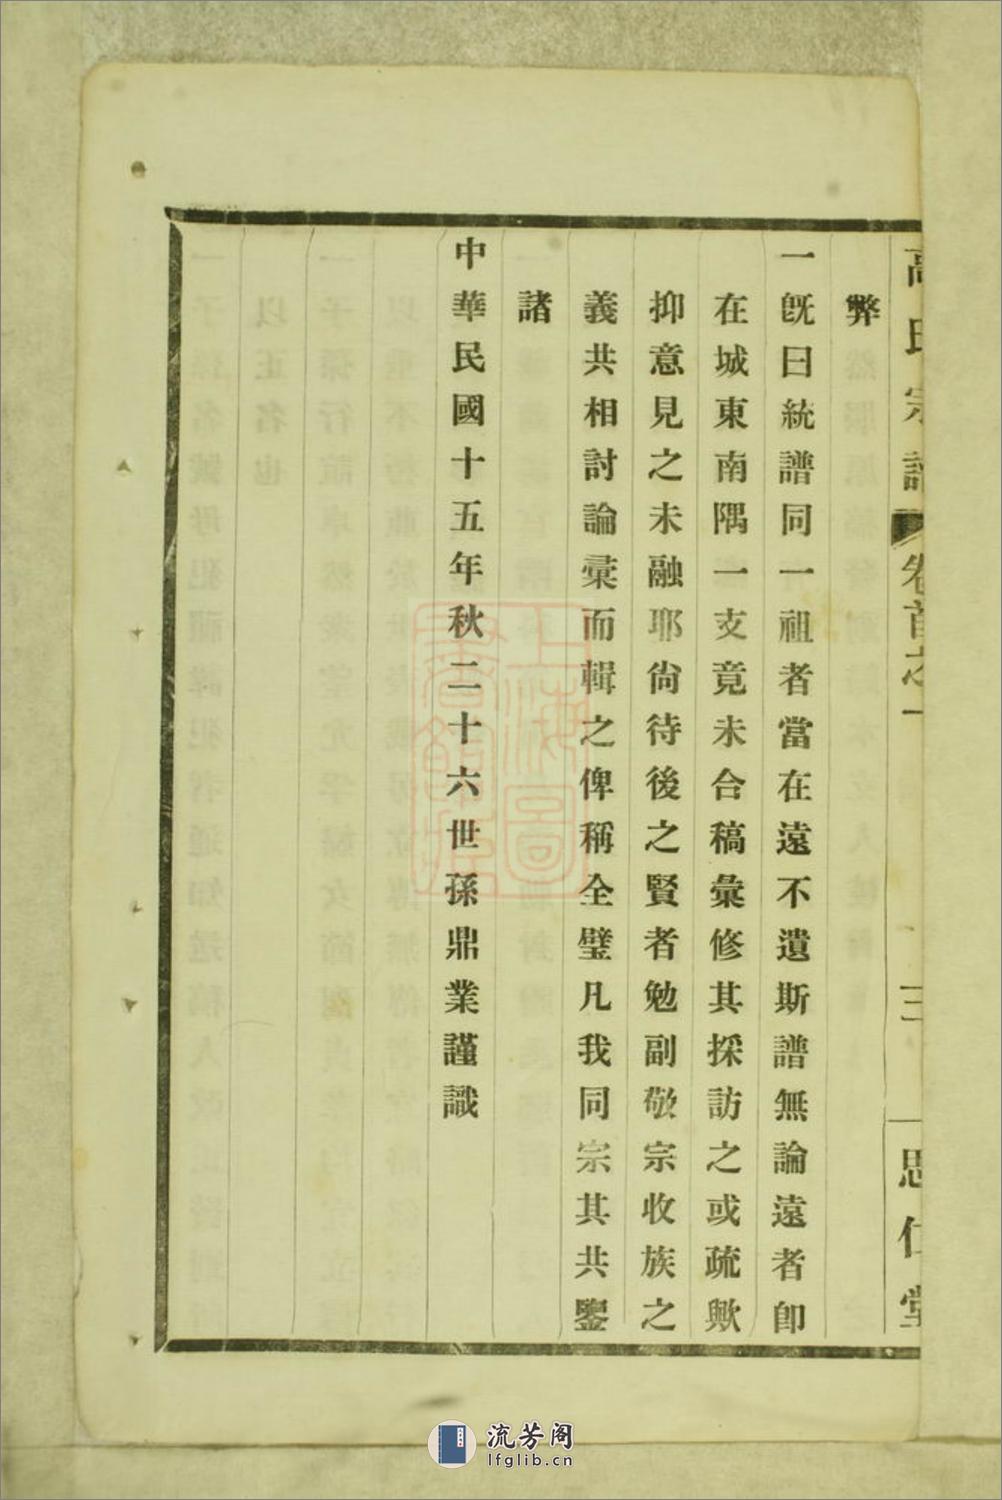 高氏宗譜 卷首之一 三 思仁堂
弊
一既曰統譜同一祖者當在遠不遺斯譜無論遠者卽
在城東南隅一支竟未合稿彙修其採訪之或疏歟
抑意見之未融耶尙待後之賢者勉副敬宗收族之
義共相討論彙而輯之俾稱全璧凡我同宗其共鑒
諸
中華民國十五年秋二十六世孫鼎業謹識
流芳阁
lfglib.cn